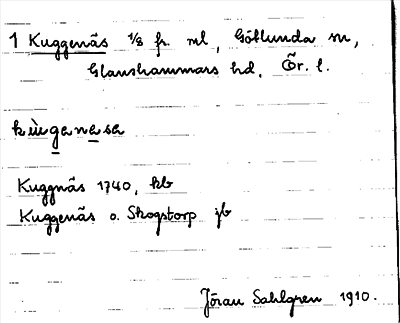 1 Kuggenäs 1/8 fr. ml, Götlunda sn,
Glanshammars hd, Ör. l.
kùganesa
Kuggnäs 1740, kb
Kuggenäs o. Skogstorp jb
Jöran Sahlgren 1910.